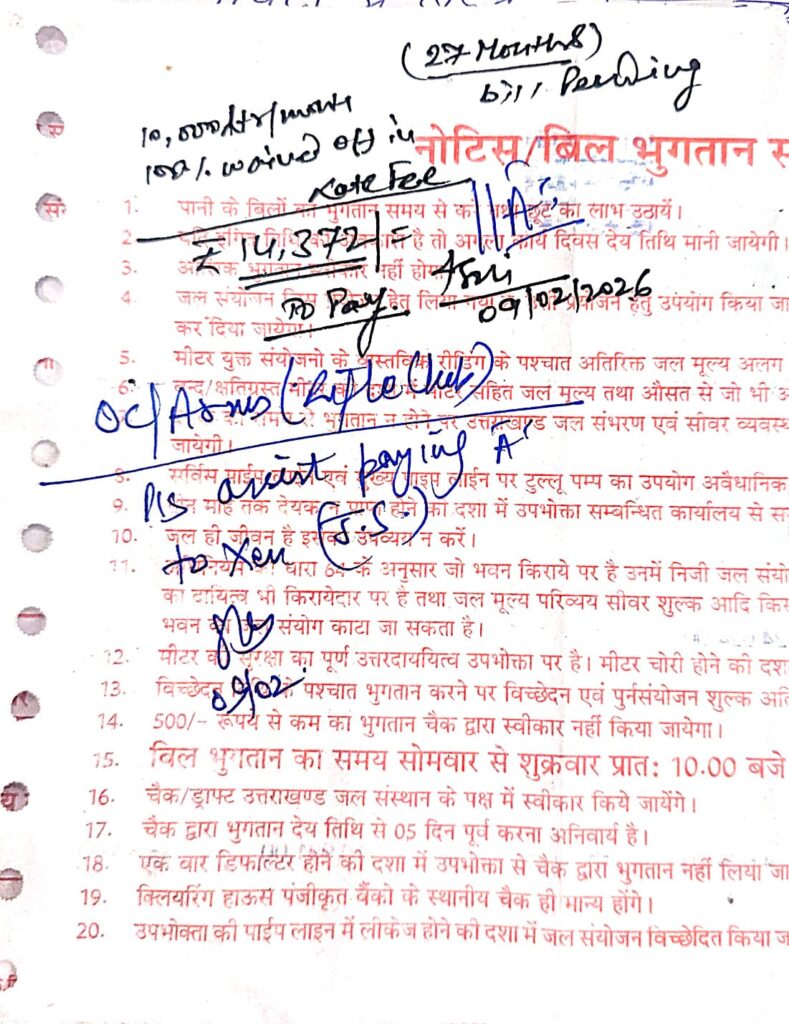 (27 Months)
bill Pending
10,000 ltr/month
100% waived off in
Late Fee
नोटिस/बिल भुगतान स
"A".
₹ 14,372/=
To Pay
09/02/2026
1. पानी के बिलों का भुगतान समय से छूट का लाभ उठायें।
2 है तो अगला कार्य दिवस देय तिथि मानी जायेगी।
3. भुगतान स्वीकार नहीं होगा
4. जल संयोजन जिस हेतु लिया गया प्रयोजन हेतु उपयोग किया जा
कर दिया जायेगा।
5. मीटर युक्त संयोजनो के वास्तविक रीडिंग के पश्चात अतिरिक्त जल मूल्य अलग
OC/Arms (Rifle Club)
6. बन्द/क्षतिग्रस्त सहित जल मूल्य तथा औसत से जो भी अ
भुगतान न होने पर उत्तराखण्ड जल संभरण एवं सीवर व्यवस्थ
जायेगी।
Pls assist paying "A"
8. सर्विस पाईप एवं मुख्य पाइप लाईन पर टुल्लू पम्प का उपयोग अवैधानिक
9. माह तक देयक न प्राप्त होने की दशा में उपभोक्ता सम्बन्धित कार्यालय से स
to Xen (J.S.)
10. जल ही जीवन है इसका उपव्यय न करें।
11. धारा 64 के अनुसार जो भवन किराये पर है उनमें निजी जल संयो
का दायित्व भी किरायेदार पर है तथा जल मूल्य परिव्यय सीवर शुल्क आदि किस
भवन का जल संयोग काटा जा सकता है।
12. मीटर की सुरक्षा का पूर्ण उत्तरदाययित्व उपभोक्ता पर है। मीटर चोरी होने की दशा
09/02
13. विच्छेदन के पश्चात भुगतान करने पर विच्छेदन एवं पुर्नसंयोजन शुल्क अति
14. 500/- रूपये से कम का भुगतान चैक द्वारा स्वीकार नहीं किया जायेगा।
15. विल भुगतान का समय सोमवार से शुक्रवार प्रात: 10.00 बजे
16. चैक/ड्राफ्ट उत्तराखण्ड जल संस्थान के पक्ष में स्वीकार किये जायेंगे।
17. चैक द्वारा भुगतान देय तिथि से 05 दिन पूर्व करना अनिवार्य है।
18. एक वार डिफाल्टर होने की दशा में उपभोक्ता से चैक द्वारा भुगतान नहीं लिया जा
19. क्लियरिंग हाऊस पंजीकृत बैंको के स्थानीय चैक ही मान्य होंगे।
20. उपभोक्ता की पाईप लाइन में लीकेज होने की दशा में जल संयोजन विच्छेदित किया ज